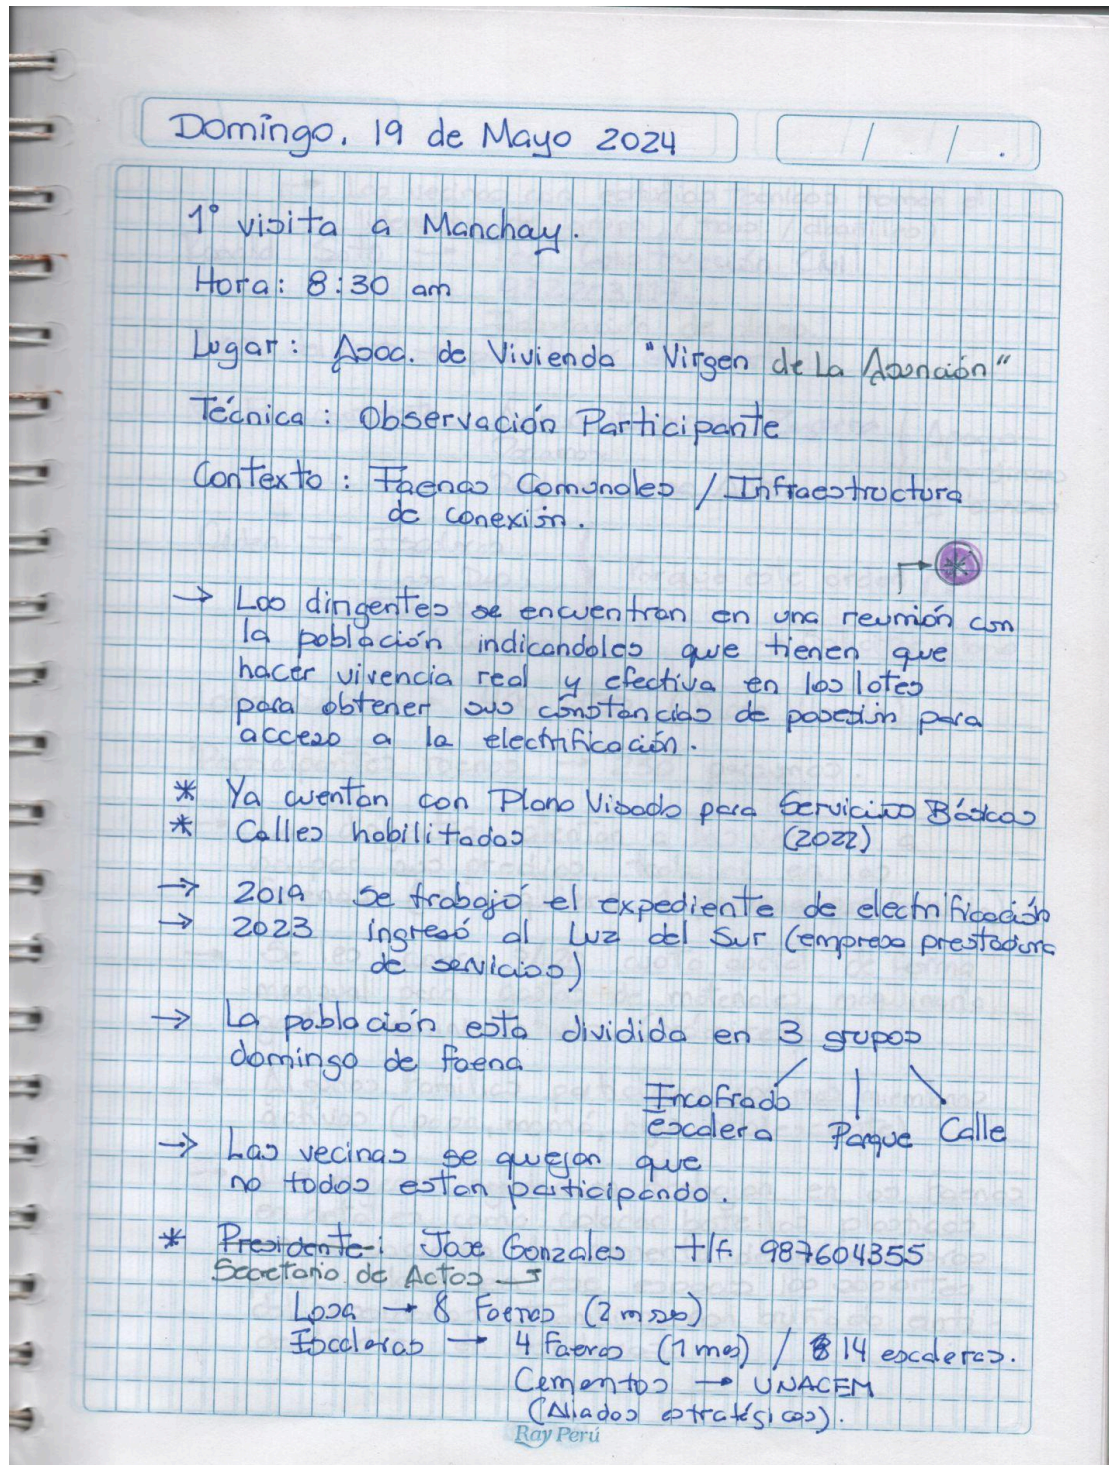 Domingo, 19 de Mayo 2024
1° visita a Manchay.
Hora: 8:30 am
Lugar: Asoc. de Vivienda "Virgen de La Asunción"
Técnica: Observación Participante
Contexto: Faenas Comunales / Infraestructura
de conexión.
→ *
→ Los dirigentes se encuentran en una reunión con
la población indicandoles que tienen que
hacer vivencia real y efectiva en los lotes
para obtener sus constancias de posesión para
acceso a la electrificación.
* Ya cuentan con Plano Visado para Servicios Básicos
* Calles habilitadas (2022)
→ 2019 Se trabajó el expediente de electrificación
→ 2023 ingresó al Luz del Sur (empresa prestadora
de servicios)
→ La población esta dividida en 3 grupos
domingo de faena
Encofrado
escalera Parque Calle
→ Las vecinas se quejan que
no todos estan participando.
* Presidente: Jose Gonzales tlf. 987604355
Secretario de Actas
Losa → 8 Faenas (2 meses)
Escaleras → 4 Faenas (1 mes) / 14 escaleras.
Cementos → UNACEM
(Aliados estratégicos).
Ray Perú